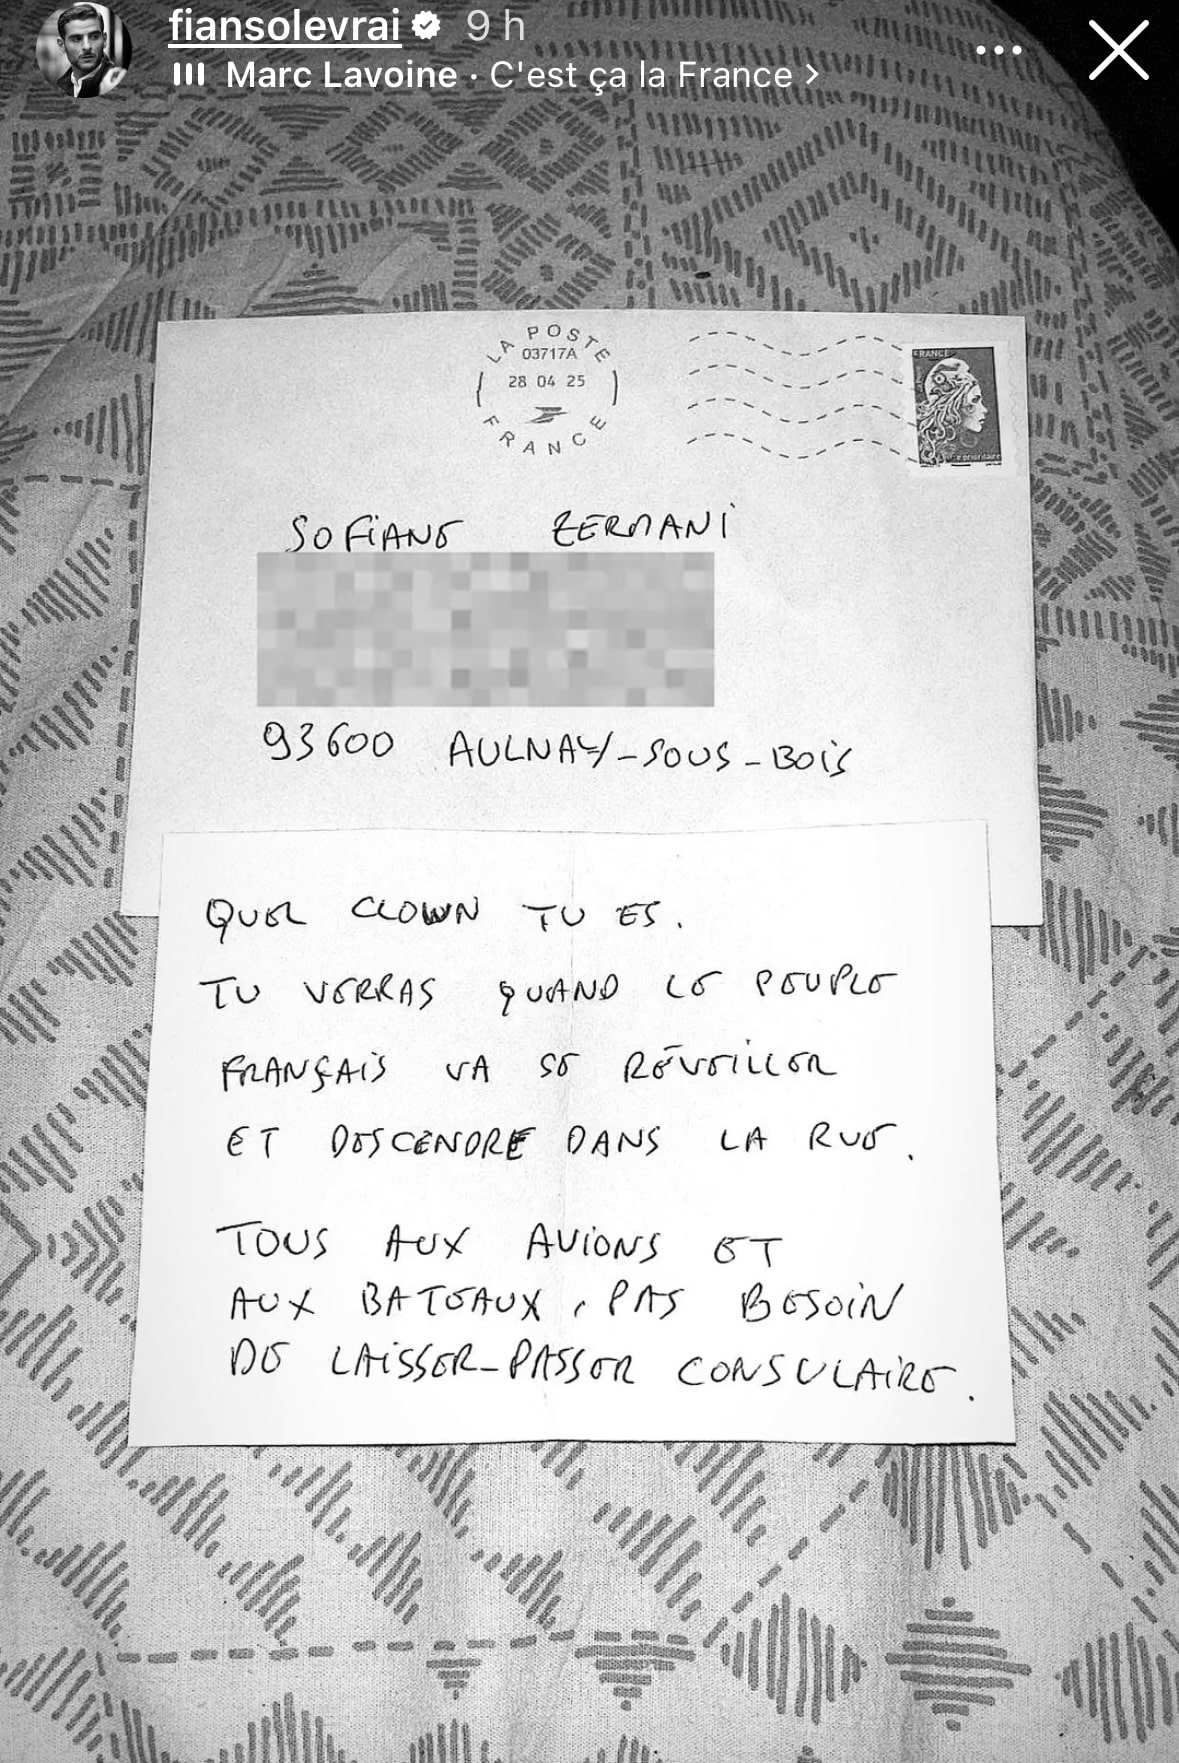 fiansolevrai 9 h
Marc Lavoine · C'est ça la France >
LA POSTE
03717A
28 04 25
FRANCE
FRANCE
prioritaire
SOFIANE ZERMANI
93600 AULNAY-SOUS-BOIS
QUEL CLOWN TU ES.
TU VERRAS QUAND LE PEUPLE
FRANÇAIS VA SE RÉVEILLER
ET DESCENDRE DANS LA RUE.
TOUS AUX AVIONS ET
AUX BATEAUX, PAS BESOIN
DE LAISSER-PASSER CONSULAIRE.